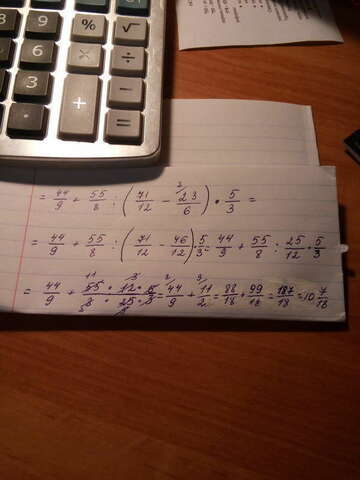 9 % √
6 × ÷
3 −
+ =
= 44/9 + 55/8 : (71/12 − 23/6 ²) • 5/3 =
= 44/9 + 55/8 : (71/12 − 46/12) 5/3 = 44/9 + 55/8 : 25/12 • 5/3
= 44/9 + 55 • 12 • 5 / 8 • 25 • 3 = 44/9 + 11/2 = 88/18 + 99/18 = 187/18 = 10 7/18